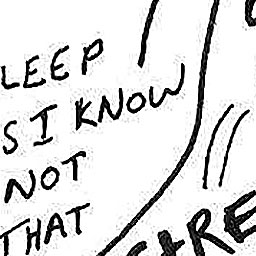 LEEP
S I KNOW
NOT
THAT